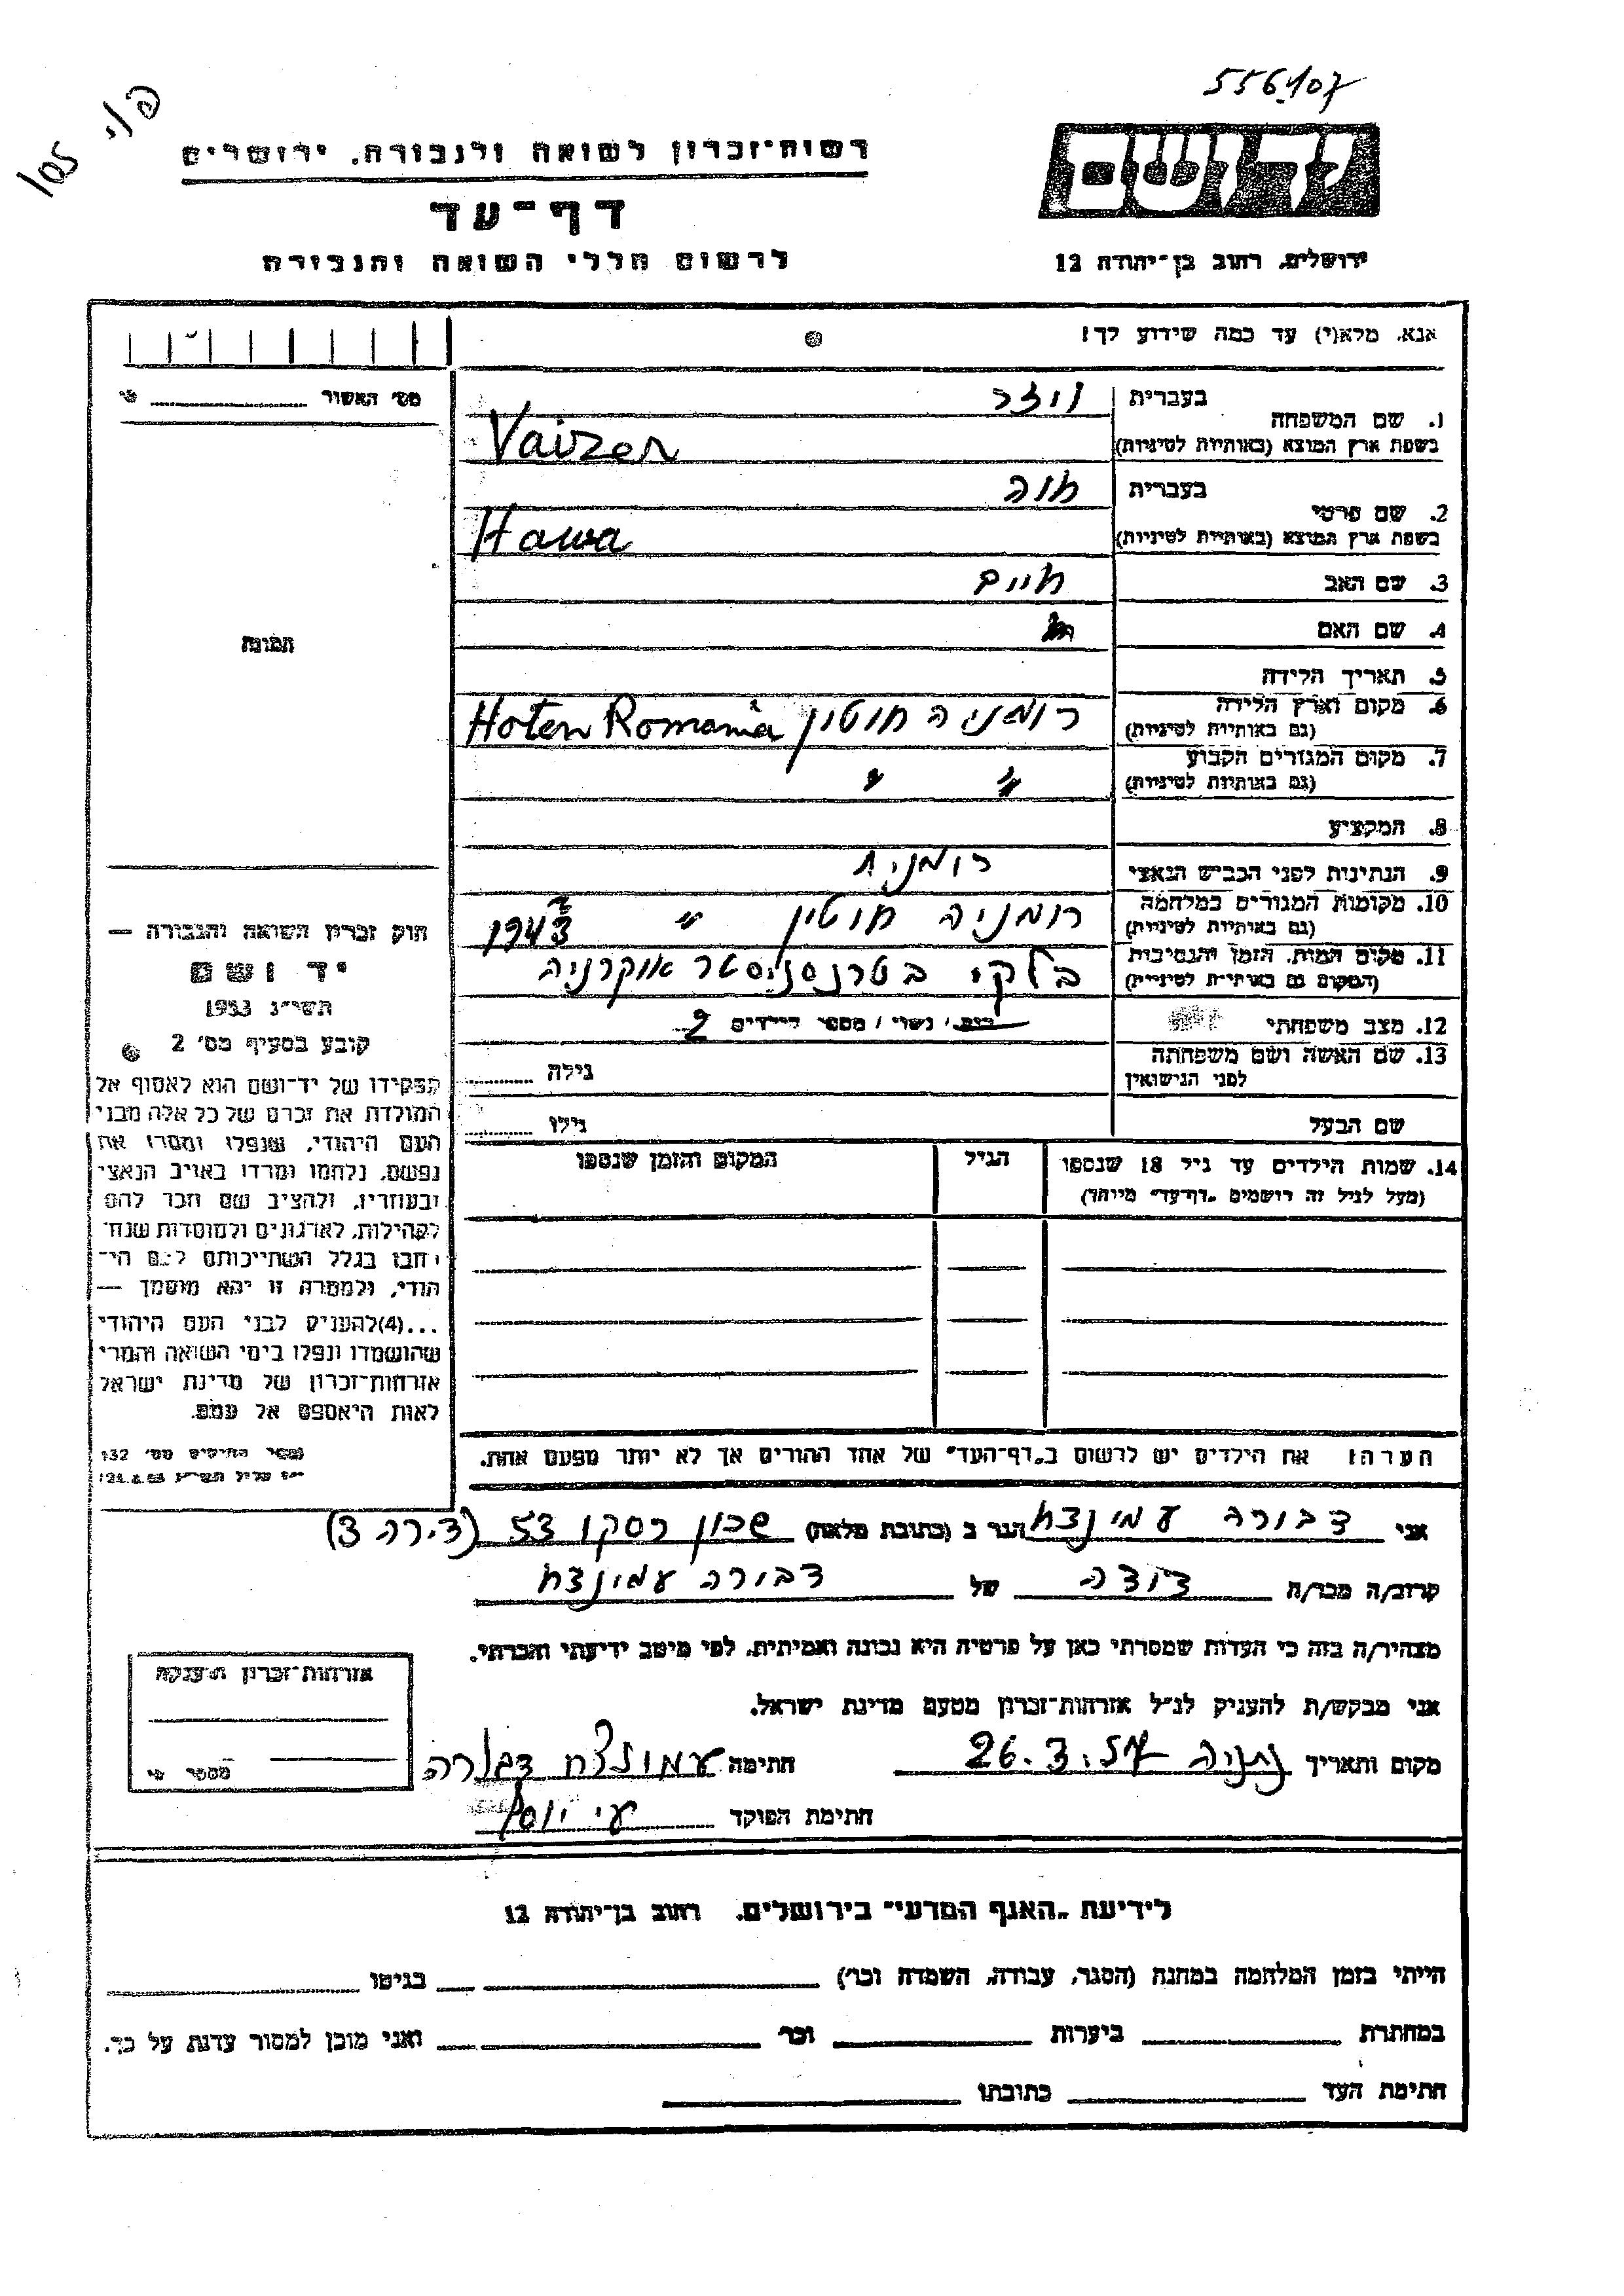 556107
פ/י 105
רשות-זכרון לשואה ולגבורה, ירושלים
דף-עד
לרשום חללי השואה והגבורה
יד ושם
ירושלים, רחוב בן-יהודה 12
אנא, מלא(י) עד כמה שידוע לך!
מס' האשור
1. שם המשפחה
בעברית
ויזר
בשפת ארץ המוצא (באותיות לטיניות)
Vaizer
2. שם פרטי
בעברית
חוה
בשפת ארץ המוצא (באותיות לטיניות)
Hawa
3. שם האב
חיים
4. שם האם
5. תאריך הלידה
6. מקום וארץ הלידה
(גם באותיות לטיניות)
רומניה חוטין Hoten Romania
7. מקום המגורים הקבוע
(גם באותיות לטיניות)
" "
8. המקציע
9. הנתינות לפני הכביש הנאצי
רומנית
10. מקומות המגורים במלחמה
(גם באותיות לטיניות)
רומניה חוטין "
11. מקום המות, הזמן והנסיבות
(המקום גם באותיות לטיניות)
1943
בלקי בטרנסניסטר אוקרניה
12. מצב משפחתי
נשוי / מספר הילדים 2
13. שם האשה ושם משפחתה
לפני הנישואין
גילה
שם הבעל
גילו
14. שמות הילדים עד גיל 18 שנספו
(מעל לגיל זה רושמים "דף-עד" מיוחד)
הגיל
המקום והזמן שנספו
הערה: את הילדים יש לרשום ב"דף-העד" של אחד ההורים אך לא יותר מפעם אחת.
תמונה
חוק זכרון השואה והגבורה —
יד ושם
תשי"ג 1953
קובע בסעיף מס' 2
תפקידו של יד-ושם הוא לאסוף אל
המולדת את זכרם של כל אלה מבני
העם היהודי, שנפלו ומסרו את
נפשם, נלחמו ומרדו באויב הנאצי
ובעוזריו, ולהציב שם וזכר להם
לקהילות, לארגונים ולמוסדות שנח-
רבו בגלל השתייכותם לעם הי-
הודי, ולמטרה זו יהא מוסמך —
...(4)להעניק לבני העם היהודי
שהושמדו ונפלו בימי השואה והמרי
אזרחות-זכרון של מדינת ישראל
לאות היאספם אל עמם.
ספר החוקים מס' 132
אני דבורה עמינצח הגר ב (כתובת מלאה) שכון רסקו 53 (דירה 3)
קרוב/ה מכר/ה דודה של דבורה עמינצח
מצהיר/ה בזה כי העדות שמסרתי כאן על פרטיה היא נכונה ואמיתית, לפי מיטב ידיעתי והכרתי.
אני מבקש/ת להעניק לנ"ל אזרחות-זכרון מטעם מדינת ישראל.
מקום ותאריך נתניה 26.3.57 חתימה עמינצח דבורה
חתימת הפוקד
אזרחות-זכרון הוענקה
מספר
לידיעת "האגף המדעי" בירושלים, רחוב בן-יהודה 12
הייתי בזמן המלחמה במחנה (הסגר, עבודה, השמדה וכו') בגיטו
במחתרת ביערות וכו' ואני מוכן למסור עדות על כך.
חתימת העד כתובתו